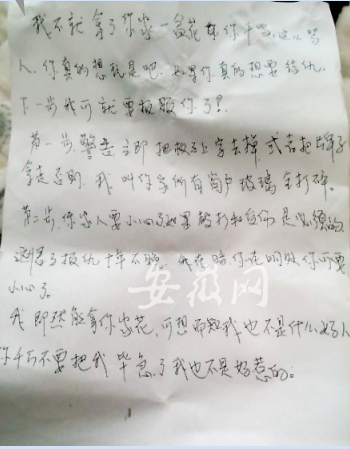 我不就拿了你家一盆花来你干吗这么骂
人.你真的想找是吧.如果你真的想要结仇.
下一步我可就要报服你了!
第一步.警告立即把板子上字去掉或者起牌子
拿走否则.我叫你家所有窗户玻璃全打碎.
第二步.你家人要小心了如果被打和自伤是必须的
报仇十年不晚.我在暗你在明你可要
小心了
我即然能拿你家花.可想而知我也不是什么好人
你千万不要把我毕急了我也不是好惹的。
安徽网